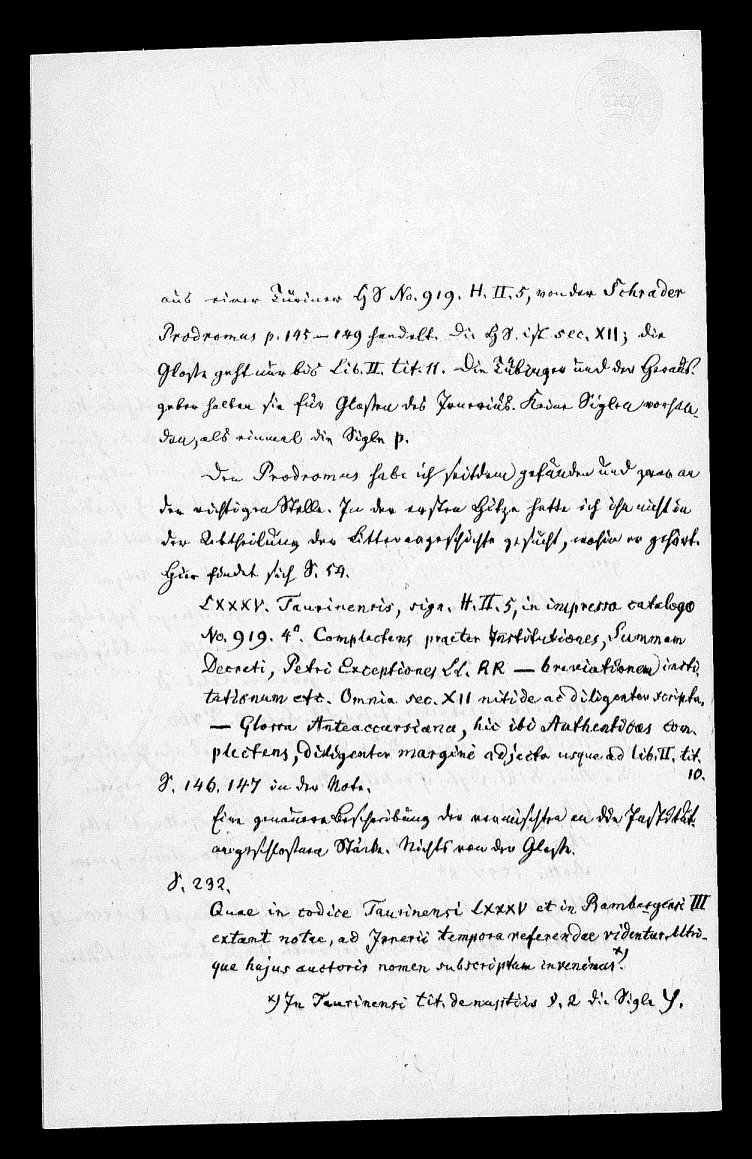 aus einer Turiner HS No. 919. H. II. 5, von der Schrader
Prodromus p. 145 — 149 handelt. Die HS. ist sec. XII; die
Glosse geht nur bis Lib. II. tit. 11. Die Tübinger und der Heraus-
geber halten sie für Glossen des Irnerius. Keine Siglen vorhan-
den, als einmal die Sigle p.
Den Prodromus habe ich seitdem gefunden und zwar an
der richtigen Stelle. In der ersten Hitze hatte ich ihn nicht in
der Abtheilung der Litterargeschichte gesucht, wohin er gehört.
Hier findet sich S. 54.
LXXXV. Taurinensis, sign. H. II. 5, in impresso catalogo
No. 919. 4°. Complectens praeter Institutiones, Summam
Decreti, Petri Exceptiones LL. RR — breviationem insti-
tutionum etc. Omnia sec. XII nitide ac diligenter scripta,
— Glossa Anteaccursiana, hic ibi Authenticas com-
plectens, diligenter margini adjecta usque ad lib. II. tit.
10.
S. 146. 147 in der Note.
Eine genauere Beschreibung der vermischten an die Institut.
angeschlossenen Stücke. Nichts von der Glosse.
S. 232.
Quae in codice Taurinensi LXXXV et in Bambergensi III
extant notae, ad Irnerii tempora referendae videntur. Utri-
que hujus auctoris nomen subscriptum invenimus x).
x) In Taurinensi tit. de nuptiis §. 2 die Sigle Y.